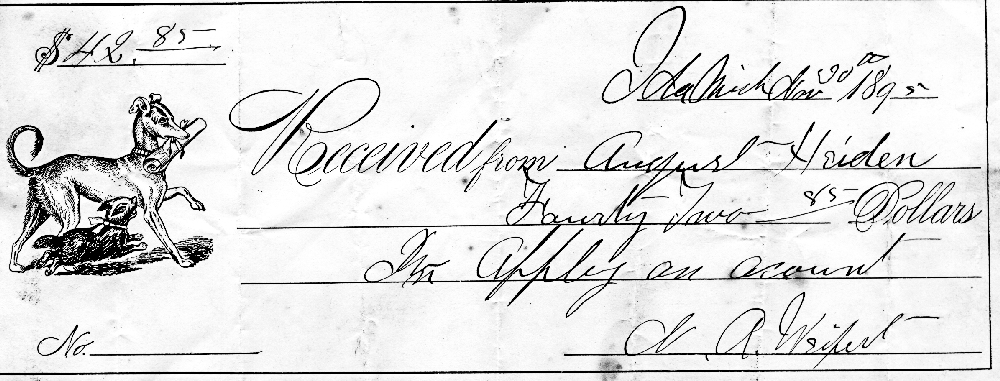 $42.85
Ida Mich Nov 30th 1895
Received from August Heiden
Fourty Two 85 Dollars
Apply on acount
No.
A. Weipert